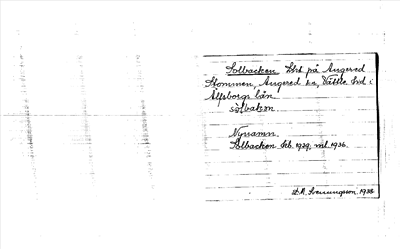 Solbacken. Lht på Angered
Stommen, Angered sn, Vättle hd i
Älfsborgs län
sòlbakən
Nynamn.
Solbacken Jrb. 1929, ml. 1936.
D.A. Sverungsson, 1938